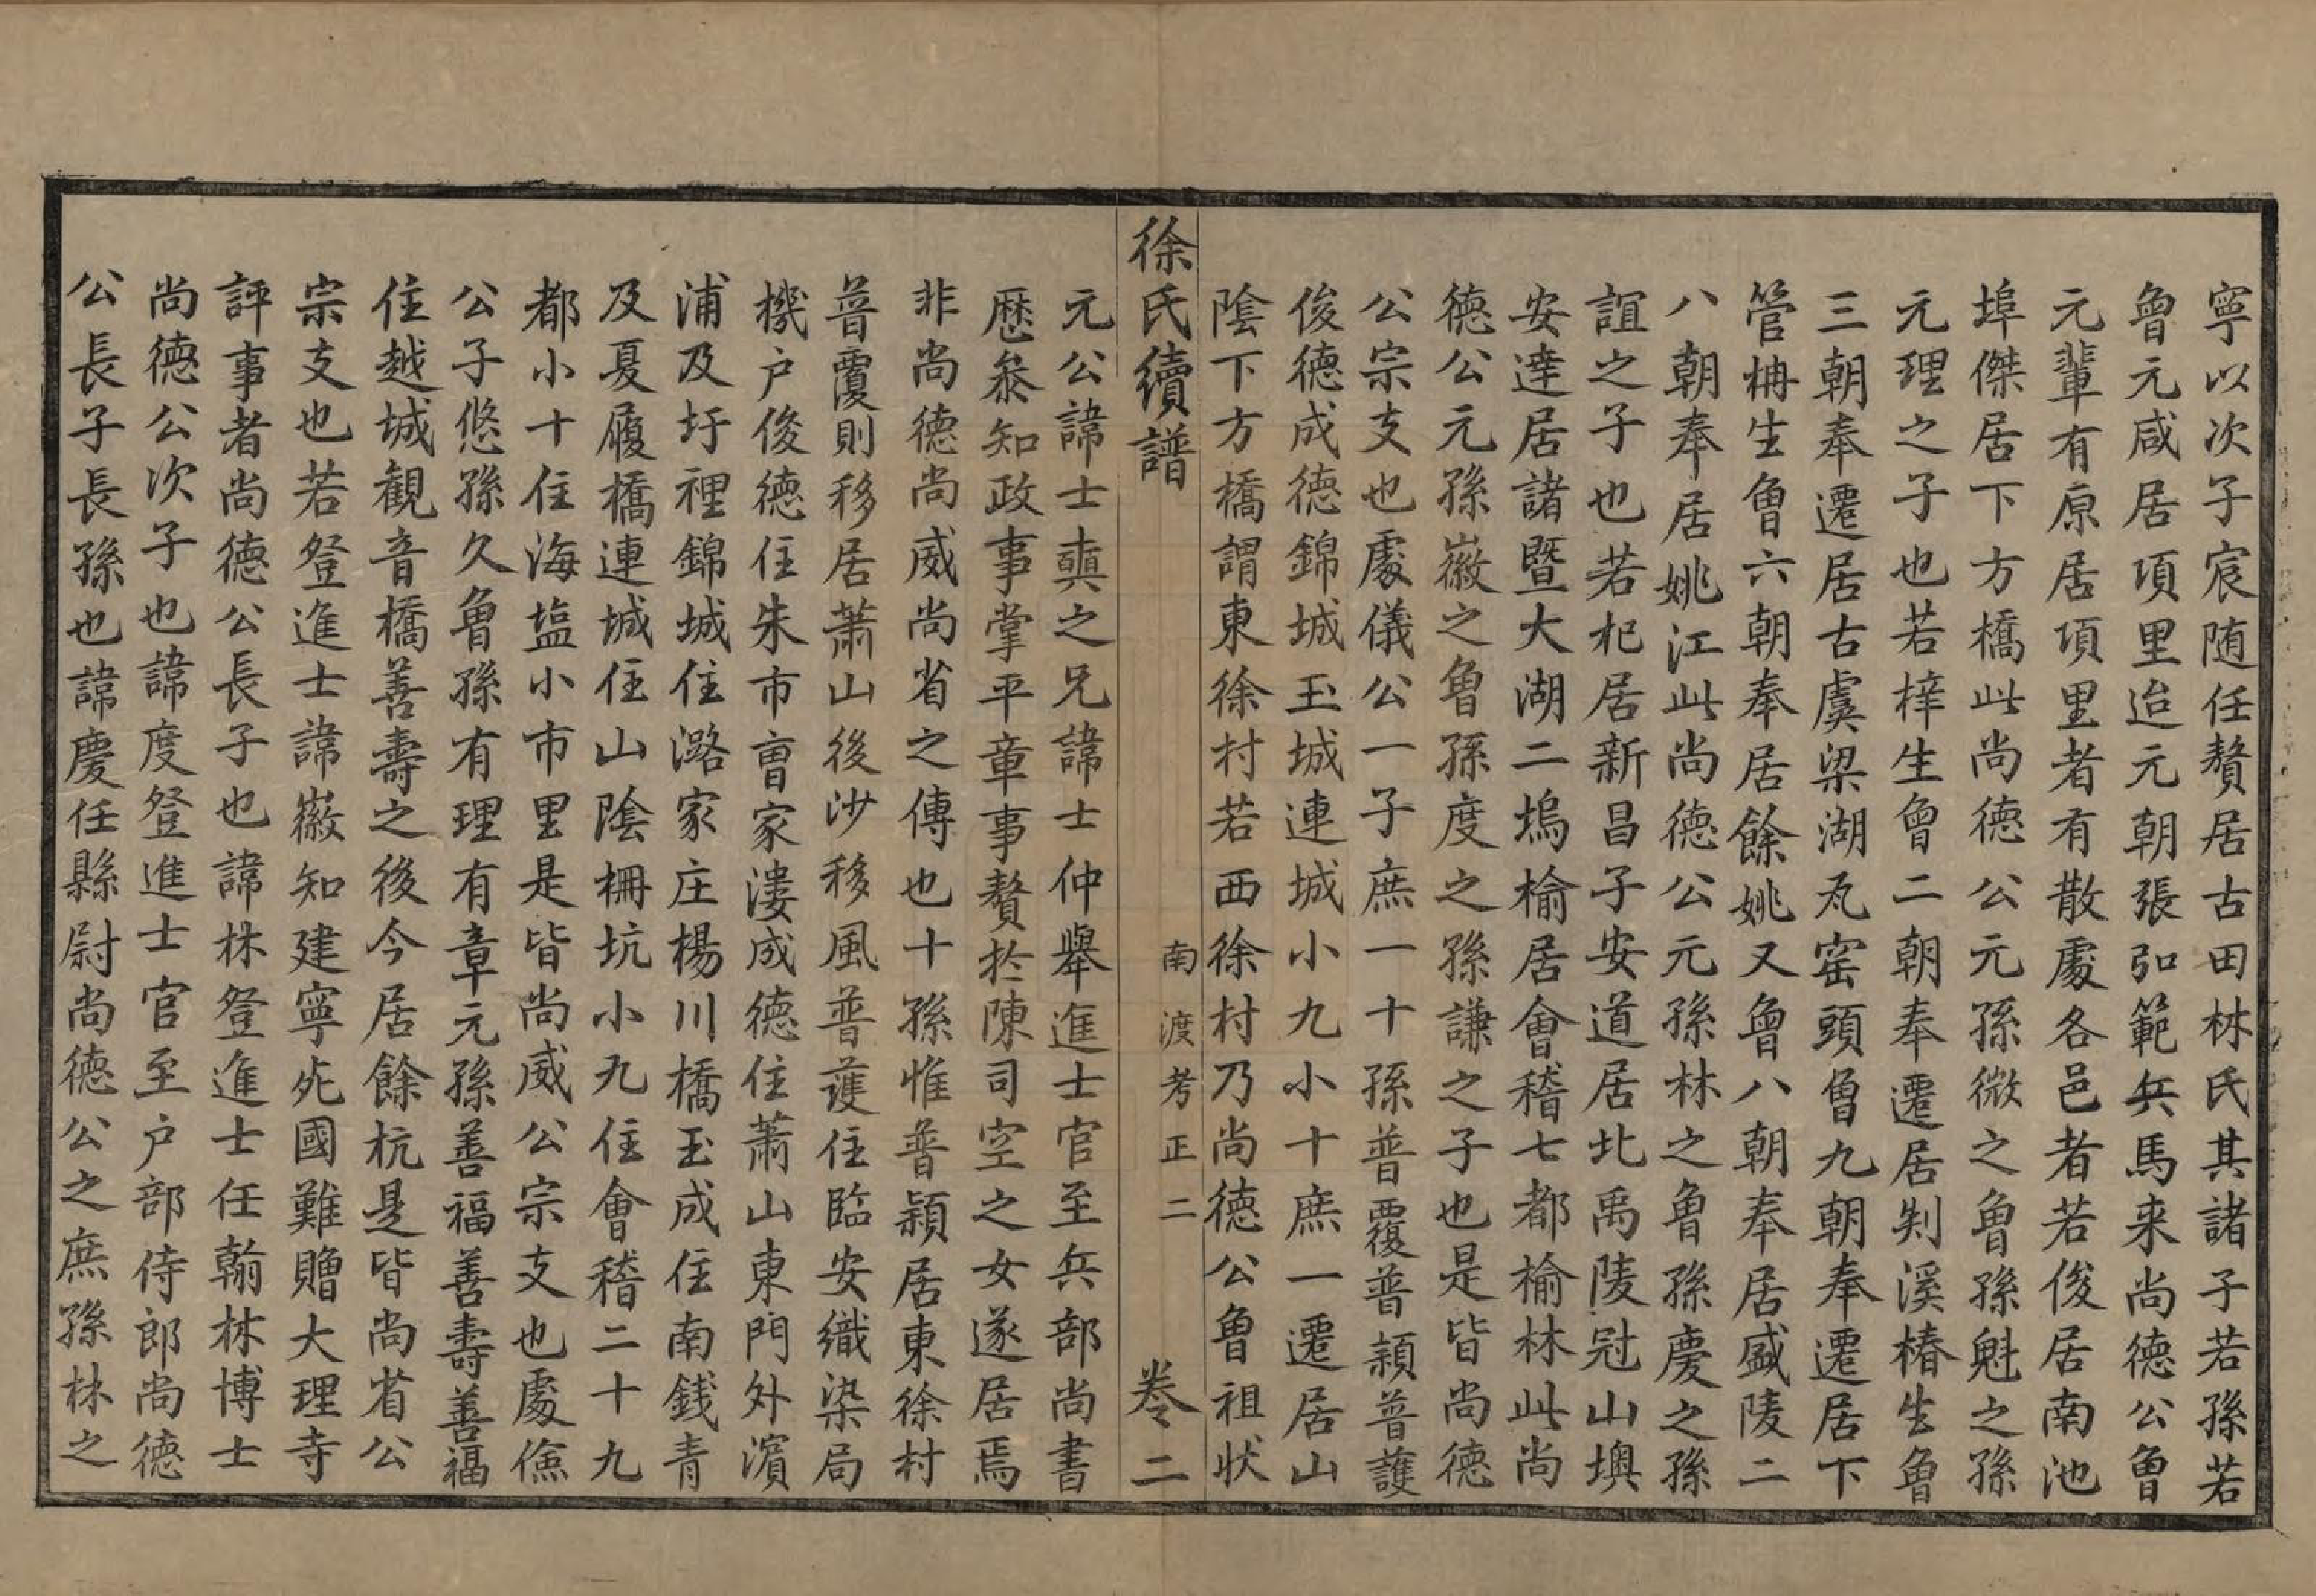 寧以次子宸随任贅居古田林氏其諸子若孫若
曾元咸居項里迨元朝張弘範兵馬来尚德公曾
元輩有原居項里者有散處各邑者若俊居南池
埠傑居下方橋此尚德公元孫微之曾孫魁之孫
元理之子也若梓生曾二朝奉遷居剡溪椿生曾
三朝奉遷居古虞梁湖瓦窑頭曾九朝奉遷居下
管枏生曾六朝奉居餘姚又曾八朝奉居盛陵二
八朝奉居姚江此尚德公元孫林之曾孫慶之孫
誼之子也若杞居新昌子安道居北禹陵冠山墺
安達居諸暨大湖二塢榆居會稽七都榆林此尚
德公元孫徽之曾孫度之孫謙之子也是皆尚德
公宗支也處儀公一子庶一十孫普覆普頴普護
俊德成德錦城玉城連城小九小十庶一遷居山
陰下方橋謂東徐村若西徐村乃尚德公曾祖狀
徐氏續譜 南渡考正二 卷二
元公諱士䡩之兄諱士仲舉進士官至兵部尚書
歷叅知政事掌平章事贅於陳司空之女遂居焉
非尚德尚威尚省之傳也十孫惟普頴居東徐村
普覆則移居蕭山後沙移風普護住臨安織染局
機户俊德住朱市曺家漊成德住蕭山東門外濵
浦及圩裡錦城住潞家庄楊川橋玉成住南錢青
及夏履橋連城住山陰柵坑小九住會稽二十九
都小十住海塩小市里是皆尚威公宗支也處儉
公子悠孫久曾孫有理有章元孫善福善壽善福
住越城觀音橋善壽之後今居餘杭是皆尚省公
宗支也若登進士諱徽知建寧死國難贈大理寺
評事者尚德公長子也諱林登進士任翰林博士
尚德公次子也諱度登進士官至户部侍郎尚德
公長子長孫也諱慶任縣尉尚德公之庶孫林之